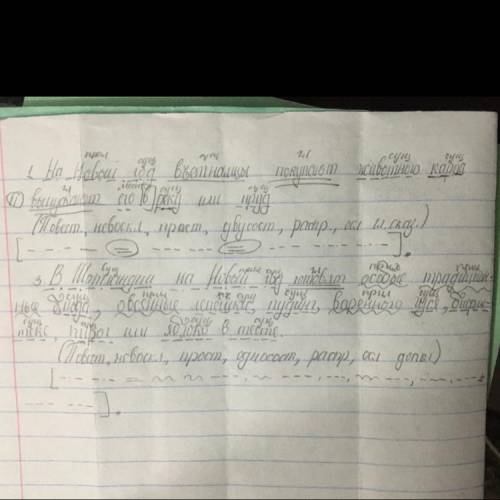 прил сущ сущ гл сущ сущ
2. На Новый год вьетнамцы покупают животного карпа
гл мест сущ сущ
и выпускают его в реку или пруд
(Повест, невоскл, прост, двусост, распр, осл
сущ прил сущ гл прил прил
3. В Шотландии на Новый год готовят особые традицион-
ные блюда, овсяные лепёшки, пудинг, варёного гуся, бифш-
текс, пирог или яблоко в тесте.
(Повест, невоскл, прост, односост, распр, осл допол)